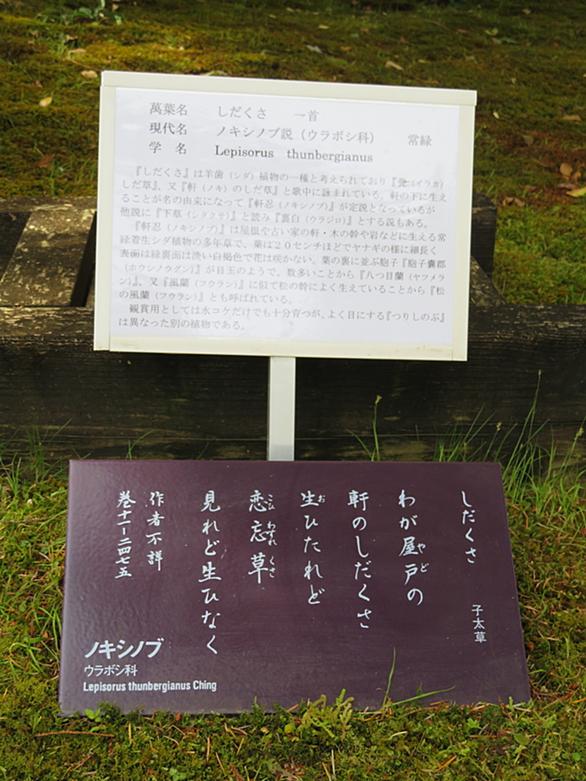 萬葉名 しだくさ 一首
現代名 ノキシノブ説（ウラボシ科） 常緑
学 名 Lepisorus thunbergianus
『しだくさ』は羊歯（シダ）植物の一種と考えられており『甍（イラカ）
しだ草』、又『軒（ノキ）のしだ草』と歌中に詠まれている。軒の下に生え
ることが名の由来になって『軒忍（ノキシノブ）』が定説となっているが
他説に『下草（シタクサ）』と読み『裏白（ウラジロ）』とする説もある。
『軒忍（ノキシノブ）』は屋根や古い家の軒・木の幹や岩などに生える常
緑着生シダ植物の多年草で、葉は２０センチほどでヤナギの様に細長く
表面は緑裏面は淡い白褐色で花は咲かない。葉の裏に並ぶ胞子『胞子嚢郡
（ホウシノウグン）』が目玉のようで、数多いことから『八つ目蘭（ヤツメラ
ン）』、又『風蘭（フウラン）』に似て松の幹によく生えていることから『松
の風蘭（フウラン）』とも呼ばれている。
観賞用としては水コケだけでも十分育つが、よく目にする『つりしのぶ』
は異なった別の植物である。
しだくさ 子太草
わが屋戸の
やど
軒のしだくさ
生ひたれど
お
恋忘草
こひわすれくさ
見れど生ひなく
作者不詳
巻十一ー二四七五
ノキシノブ
ウラボシ科
Lepisorus thunbergianus Ching